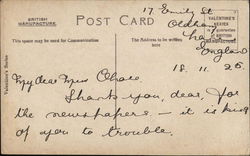 17 Emily St
POST CARD
Oldham
BRITISH
MANUFACTURE
VALENTINE'S
SERIES
This space may be used for Communication
The Address to be written
here
England
18. 11. 25.
My dear Miss
Thank you, dear, for
the newspapers — it is kind
of you to trouble.
Valentine's Series